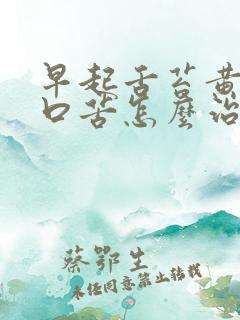 早起舌苔黄
口苦怎麼治
蔡鄂生
未经同意禁止转载